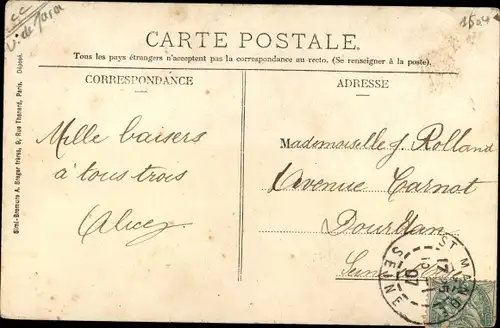 CARTE POSTALE.
Tous les pays étrangers n'acceptent pas la correspondance au recto. (Se renseigner à la poste).
CORRESPONDANCE
ADRESSE
Mille baisers
à tous trois
Alice
Mademoiselle J. Rolland
Avenue Carnot
Dourdan
Seine
Simi-Bromure A. Breger frères, 9, Rue Thenard, Paris. Déposé.
ST MANDÉ
17
07
SEINE